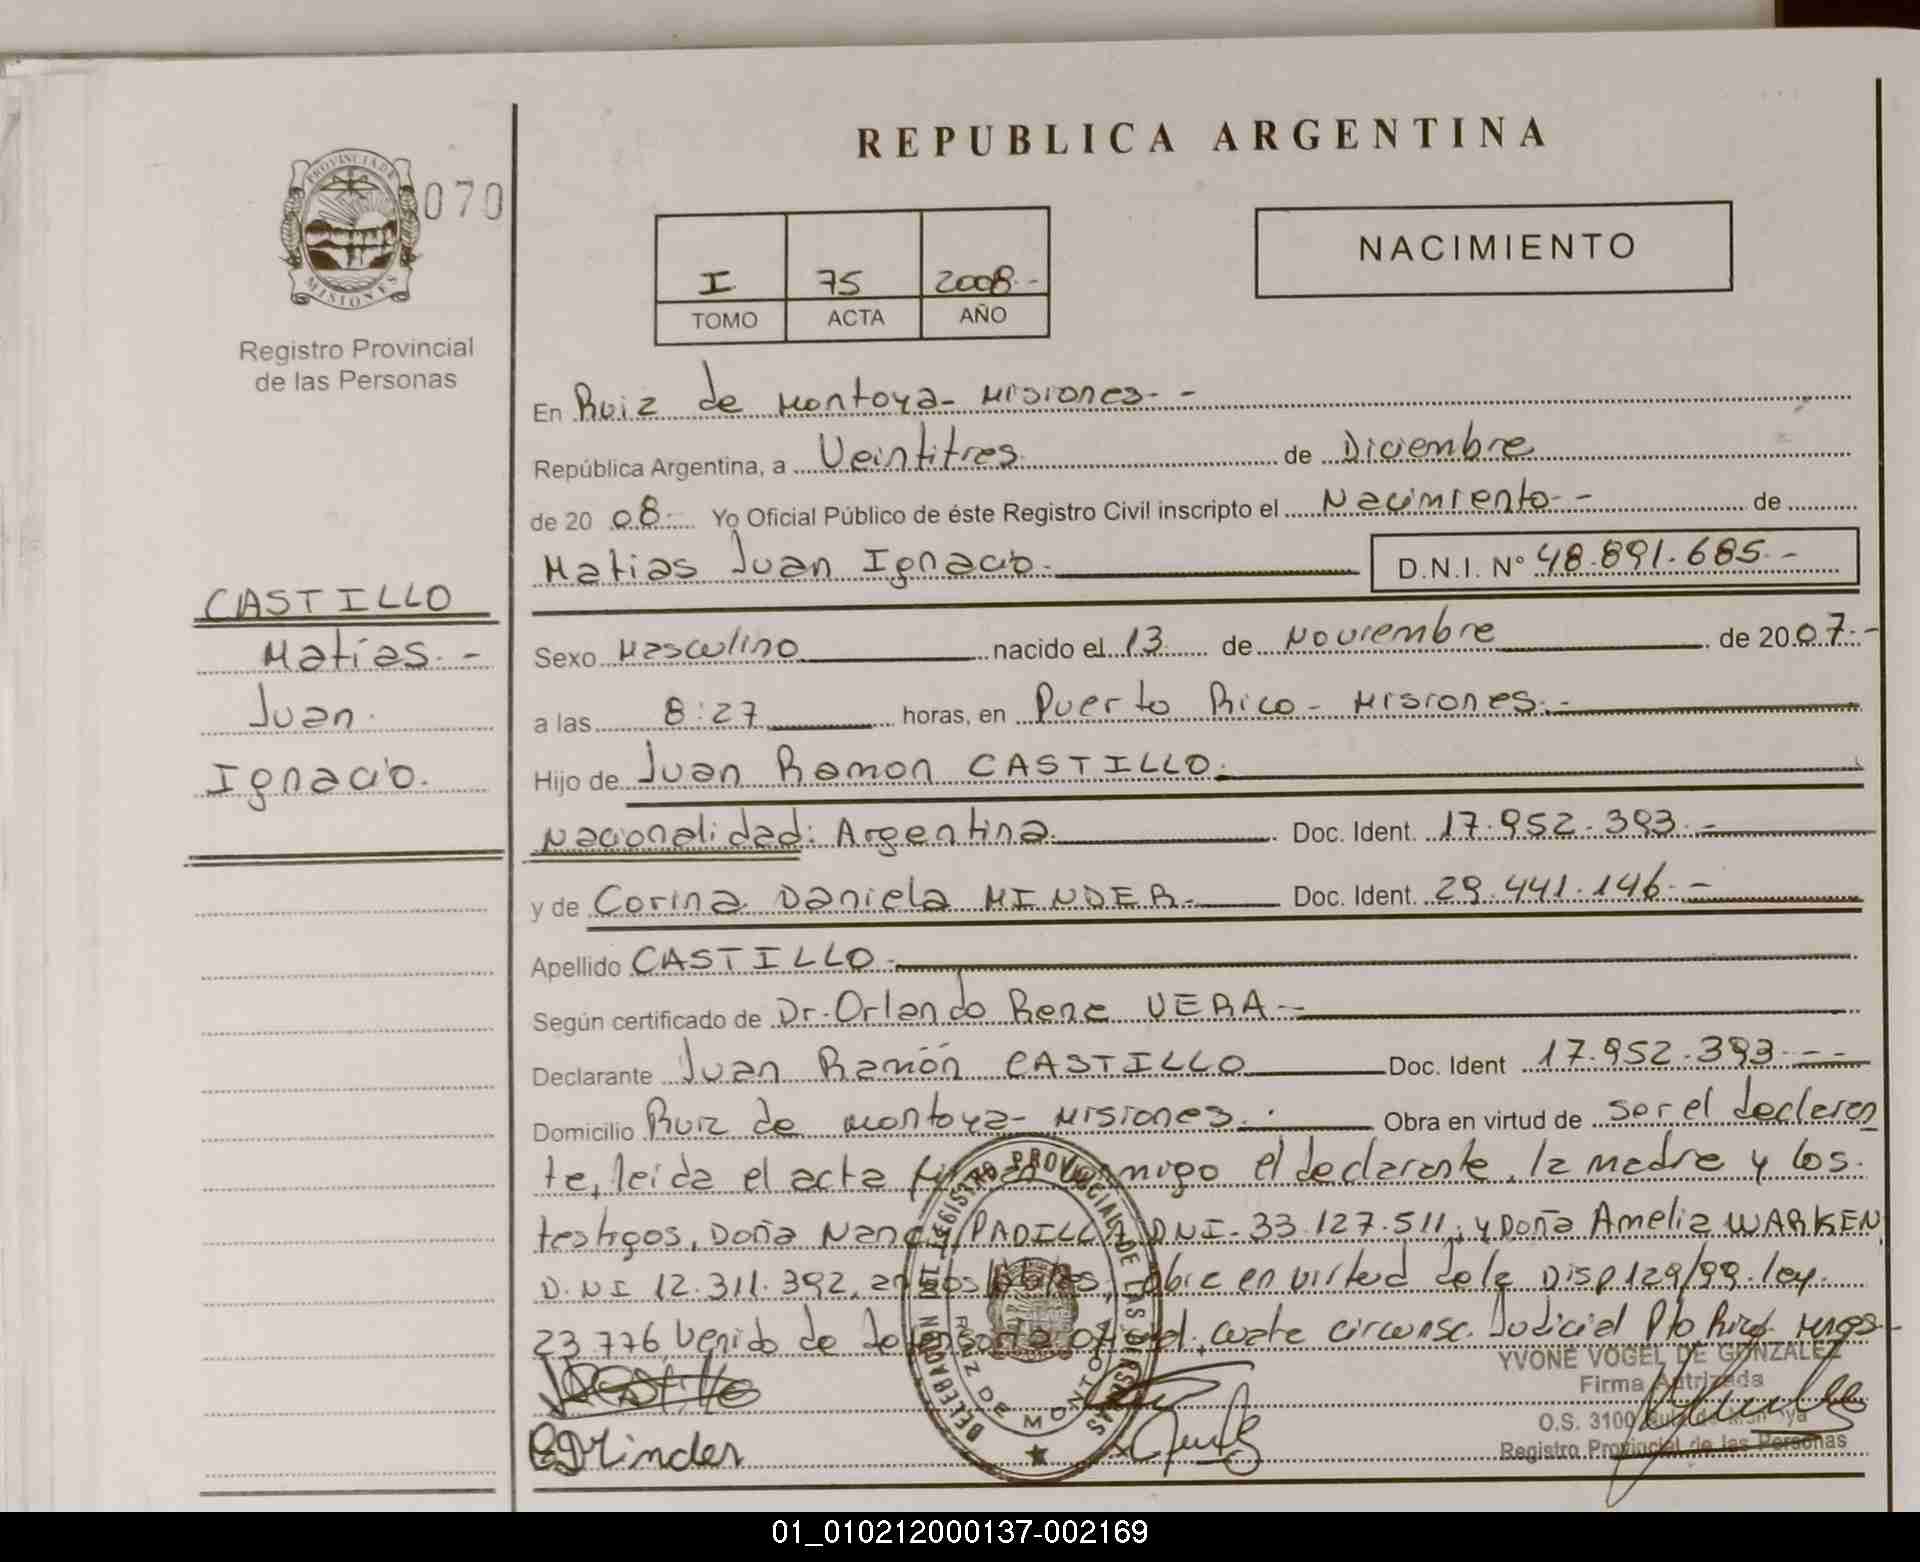 REPUBLICA ARGENTINA
PROVINCIA DE
MISIONES
070
Registro Provincial
de las Personas
I 75 2008.-
TOMO ACTA AÑO
NACIMIENTO
En Ruiz de Montoya- Misiones.-
República Argentina, a Veintitres de Diciembre
de 20 08.- Yo Oficial Público de éste Registro Civil inscripto el Nacimiento.- de
Matias Juan Ignacio. D.N.I. N° 48.891.685.-
CASTILLO
Matías.-
Juan.
Ignacio.
Sexo Masculino nacido el 13 de Noviembre de 2007.-
a las 8:27 horas, en Puerto Rico- Misiones.-
Hijo de Juan Ramon CASTILLO.
Nacionalidad: Argentina. Doc. Ident. 17.952.393.-
y de Corina Daniela MINDER.- Doc. Ident. 29.441.146.-
Apellido CASTILLO.-
Según certificado de Dr. Orlando Rene VERA-
Declarante Juan Ramón CASTILLO Doc. Ident 17.952.393.--
Domicilio Ruiz de Montoya- Misiones.. Obra en virtud de ser el declaran
te, leida el acta firman conmigo el declarante, la madre y los.
testigos, Doña Nancy PADILLA DNI- 33.127.511, y Doña Amelia WARKEN,
D.N.I 12.311.392, ambos hábiles, obra en virtud de la Disp 129/99. ley.
23.776, Venido de defensoria oficial. cuarta circunsc. Judicial Pto Rico Mnes.-
JRCastillo
CDMinder
DELEGACION REGISTRO PROVINCIAL DE LAS PERSONAS
RUIZ DE MONTOYA
YVONE VOGEL DE GONZALEZ
Firma Autrizada
O.S. 3100 Ruiz de Montoya
Registro Provincial de las Personas
01_010212000137-002169